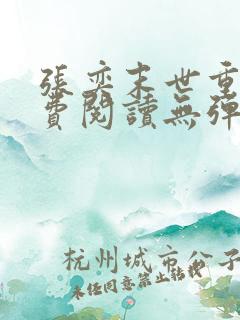 張奕末世重
費閱讀無彈
杭州城市分子
未经同意禁止转载